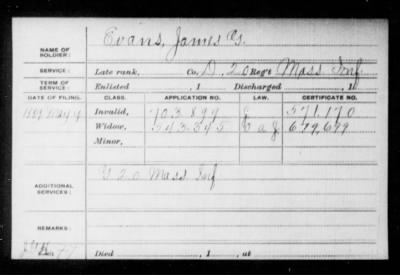 Evans, James G.
NAME OF SOLDIER:
SERVICE: Late rank, Co. D, 20 Reg't Mass Inf
TERM OF SERVICE: Enlisted , 1 Discharged , 1
DATE OF FILING. CLASS. APPLICATION NO. LAW. CERTIFICATE NO.
Invalid, 703.899 571.170
Widow, 543.345 679,699
Minor,
ADDITIONAL SERVICES: 20 Mass Inf
REMARKS:
Died , 1 , at